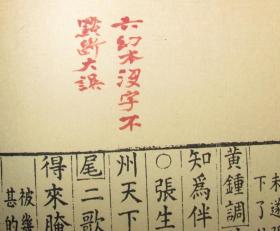 六幻本没字不
點斷大誤
未遂
下了
黃鍾調
知爲伴
○張生
州天下
尾二歌
得來腌
被幾
甚的